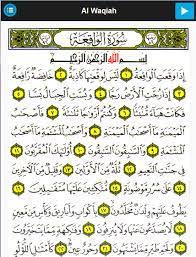 Al Waqiah
سُورَةُ الْوَاقِعَةِ
بِسْمِ اللَّهِ الرَّحْمَٰنِ الرَّحِيمِ
إِذَا وَقَعَتِ الْوَاقِعَةُ ١ لَيْسَ لِوَقْعَتِهَا كَاذِبَةٌ ٢ خَافِضَةٌ رَافِعَةٌ
٣ إِذَا رُجَّتِ الْأَرْضُ رَجًّا ٤ وَبُسَّتِ الْجِبَالُ بَسًّا ٥ فَكَانَتْ
هَبَاءً مُنْبَثًّا ٦ وَكُنْتُمْ أَزْوَاجًا ثَلَاثَةً ٧ فَأَصْحَابُ
الْمَيْمَنَةِ مَا أَصْحَابُ الْمَيْمَنَةِ ٨ وَأَصْحَابُ الْمَشْأَمَةِ مَا أَصْحَابُ
الْمَشْأَمَةِ ٩ وَالسَّابِقُونَ السَّابِقُونَ ١٠ أُولَٰئِكَ الْمُقَرَّبُونَ ١١
فِي جَنَّاتِ النَّعِيمِ ١٢ ثُلَّةٌ مِنَ الْأَوَّلِينَ ١٣ وَقَلِيلٌ مِنَ الْآخِرِينَ
١٤ عَلَىٰ سُرُرٍ مَوْضُونَةٍ ١٥ مُتَّكِئِينَ عَلَيْهَا مُتَقَابِلِينَ ١٦
يَطُوفُ عَلَيْهِمْ وِلْدَانٌ مُخَلَّدُونَ ١٧ بِأَكْوَابٍ وَأَبَارِيقَ وَكَأْسٍ مِنْ مَعِينٍ
١٨ لَا يُصَدَّعُونَ عَنْهَا وَلَا يُنْزِفُونَ ١٩ وَفَاكِهَةٍ مِمَّا يَتَخَيَّرُونَ
٢٠ وَلَحْمِ طَيْرٍ مِمَّا يَشْتَهُونَ ٢١ وَحُورٌ عِينٌ ٢٢ كَأَمْثَالِ اللُّؤْلُؤِ